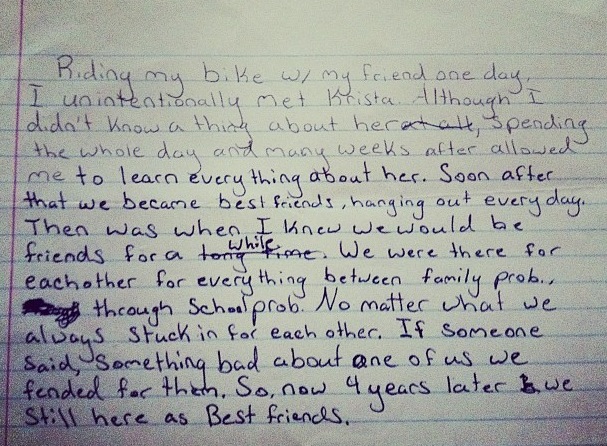 Riding my bike w/ my friend one day,
I unintentionally met Krista. Although I
didn't know a thing about her at all, spending
the whole day and many weeks after allowed
me to learn everything about her. Soon after
that we became best friends, hanging out every day.
Then was when I knew we would be
friends for a long time. while. We were there for
eachother for everything between family prob.,
through School prob. No matter what we
always stuck in for each other. If someone
said, something bad about one of us we
fended for them. So, now 4 years later we
still here as Best friends.